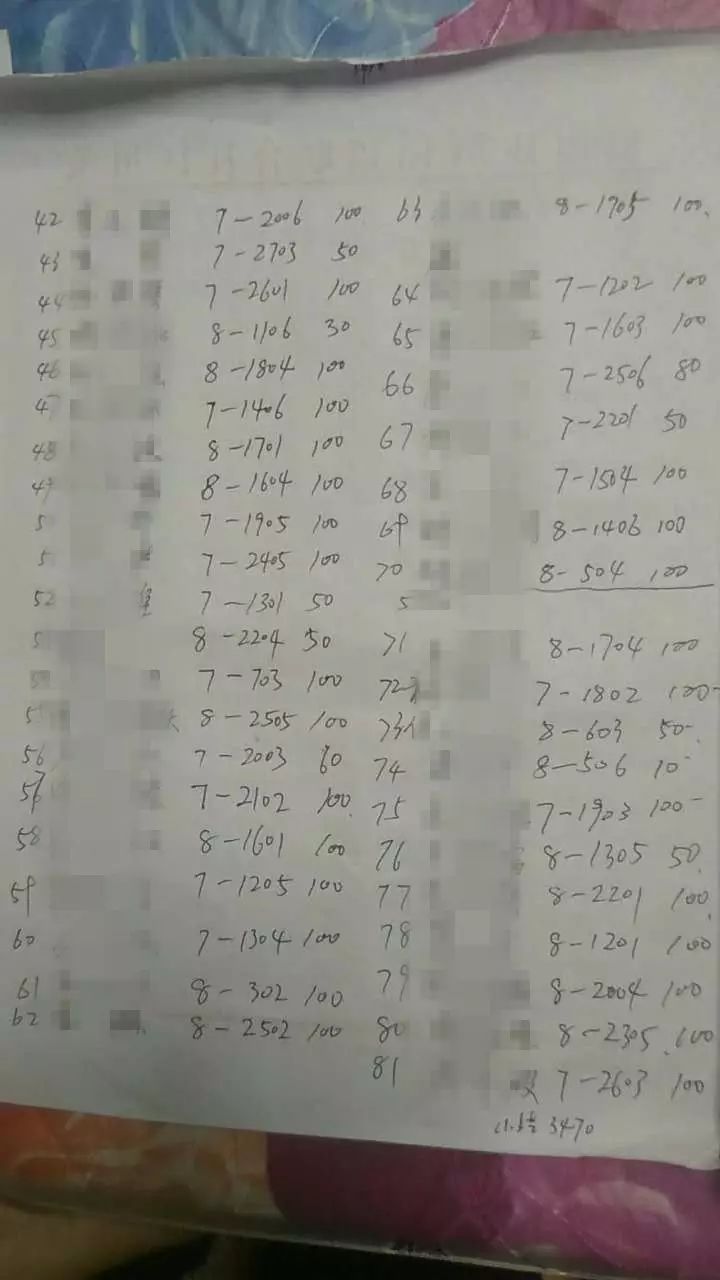 42 7-2006 100
43 7-2703 50
44 7-2601 100
45 8-1106 30
46 8-1804 100
47 7-1406 100
48 8-1701 100
49 8-1604 100
5 7-1905 100
5 7-2405 100
52 7-1301 50
5 8-2204 50
7-703 100
5 8-2505 100
56 7-2003 60
57 7-2102 100
58 8-1601 100
59 7-1205 100
60 7-1304 100
61 8-302 100
62 8-2502 100
63 8-1705 100
64 7-1202 100
65 7-1603 100
66 7-2506 80
67 7-2201 50
68 7-1504 100
69 8-1406 100
70 8-504 100
5
71 8-1704 100
72 7-1802 100-
73 8-603 50-
74 8-506 10-
75 7-1903 100-
76 8-1305 50
77 8-2201 100
78 8-1201 100
79 8-2004 100
80 8-2305 100
81 7-2603 100
小结 3470